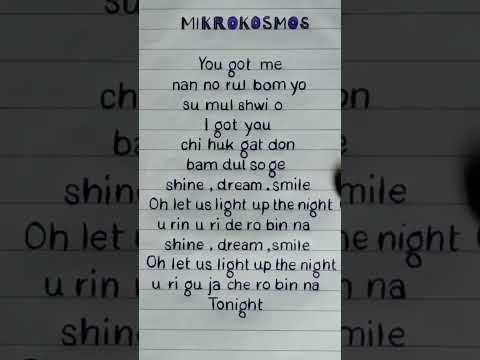 MIKROKOSMOS
You got me
nan no rul bom yo
su mul shwi o
I got you
chi huk gat don
bam dul so ge
shine, dream, smile
Oh let us light up the night
u rin u ri de ro bin na
shine, dream, smile
Oh let us light up the night
u ri gu ja che ro bin na
Tonight